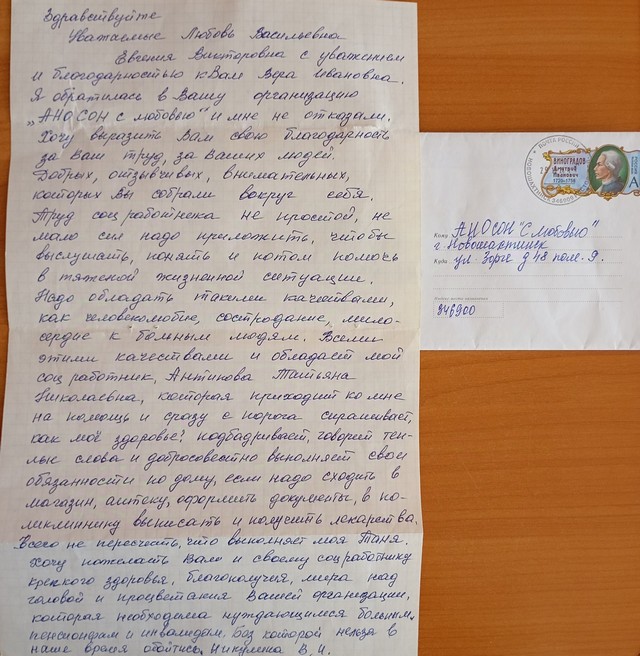 Здравствуйте
Уважаемые Любовь Васильевна
Евгения Викторовна с уважением
и благодарностью к Вам Вера Ивановна.
Я обратилась в Вашу организацию
„АНОСОН с любовью" и мне не отказали.
Хочу выразить Вам свою благодарность
за Ваш труд, за Ваших людей.
Добрых, отзывчивых, внимательных,
которых Вы собрали вокруг себя.
Труд соц работника не простой, не
мало сил надо приложить, чтобы
выслушать, понять и потом помочь
в тяжёлой жизненной ситуации.
Надо обладать такими качествами,
как человеколюбие, сострадание, мило-
сердие к больным людям. Всеми
этими качествами и обладает мой
соц работник, Антипова Татьяна
Николаевна, которая приходит ко мне
на помощь и сразу с порога спрашивает,
как моё здоровье? подбадривает, говорит теп-
лые слова и добросовестно выполняет свои
обязанности по дому, если надо сходить в
магазин, аптеку, оформить документы, в по-
ликлиннику выписать и получить лекарства.
Всего не пересчеть, что выполняет моя Таня.
Хочу пожелать Вам и своему соц работнику
крепкого здоровья, благополучия, мира над
головой и процветания Вашей организации,
которая необходима нуждающимся больным,
пенсионерам и инвалидам, без которой нельзя в
наше время обойтись. Никулина В. И.
ПОЧТА РОССИИ
ВИНОГРАДОВ
Дмитрий
Иванович
1720–1758
А
Кому АНОСОН "С Любовью"
г. Новошахтинск
Куда ул. Зорге д 48 пом. 9.
346900